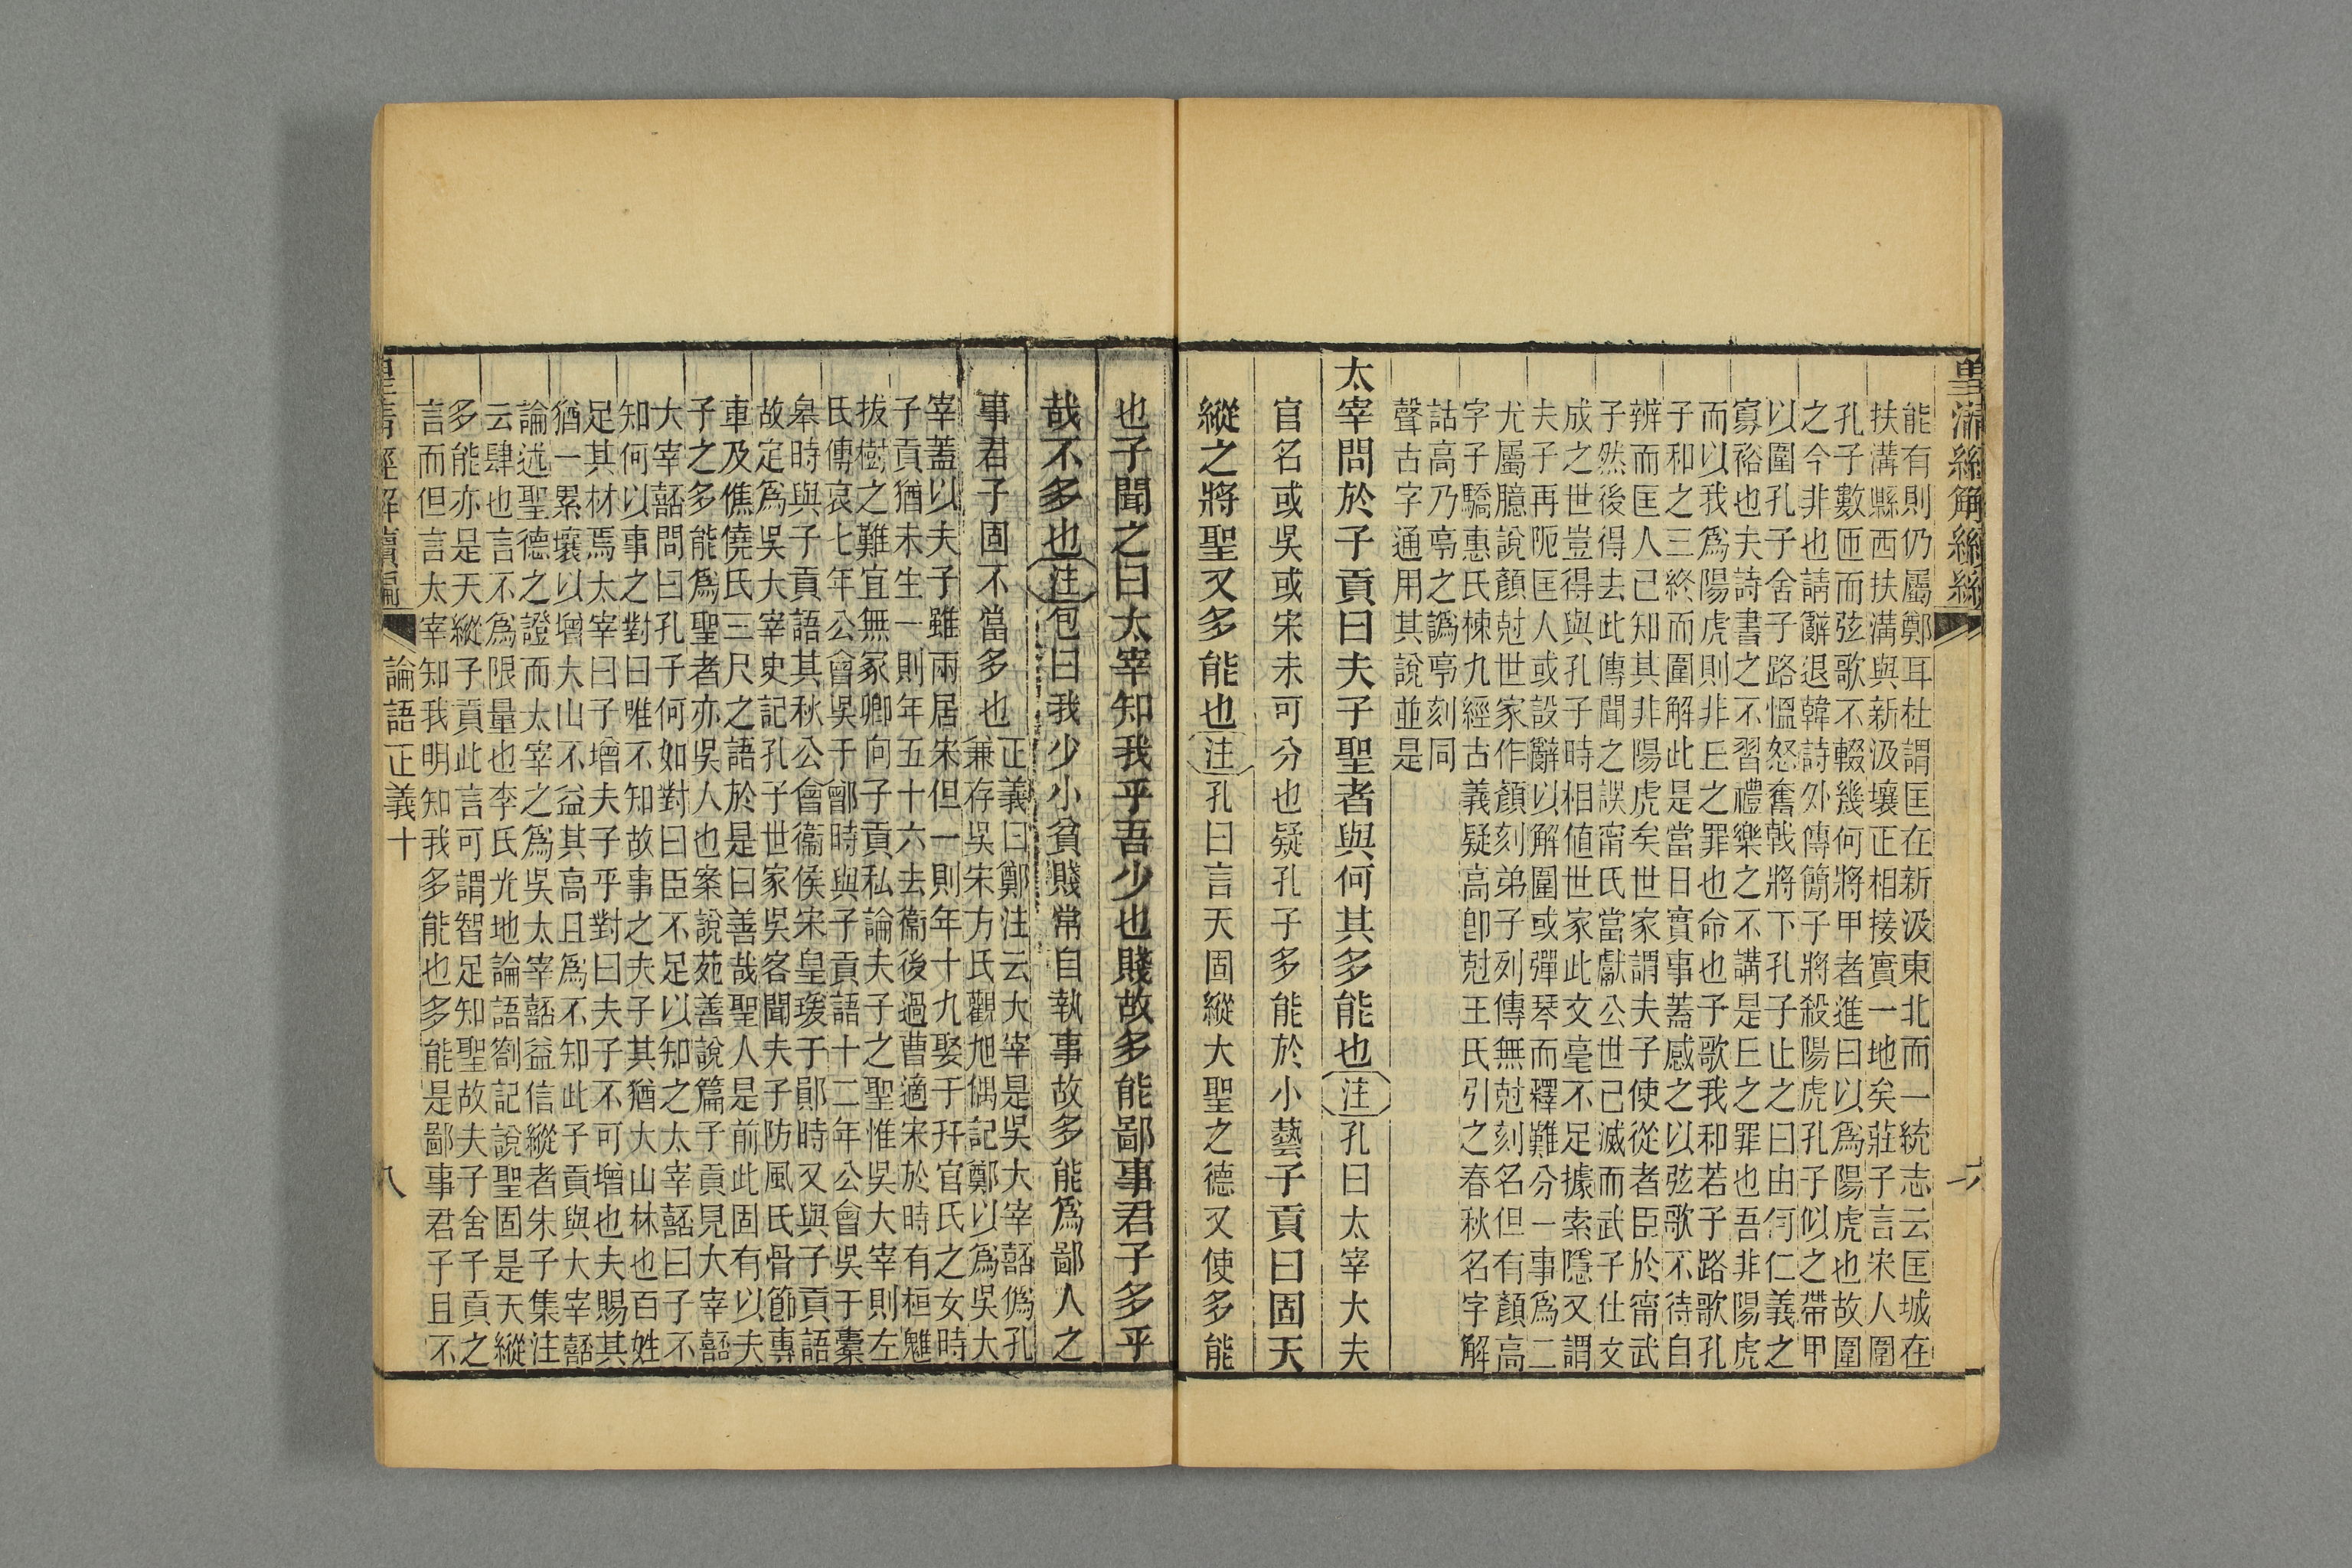 能有則仍屬鄭耳杜謂匡在新汲東北而一統志云匡城在
扶溝縣西扶溝與新汲壤正相接實一地矣莊子言宋人圍
孔子數匝而弦歌不輟幾何將甲者進曰以爲陽虎也故圍
之今非也請辭退韓詩外傳簡子將殺陽虎孔子似之帶甲
以圍孔子舍子路慍怒奮戟將下孔子止之曰由何仁義之
寡裕也夫詩書之不習禮樂之不講是丘之罪也吾非陽虎
而以我爲陽虎則非丘之罪也命也子歌我和若子路歌孔
子和之三終而圍解此是當日實事蓋感之以弦歌不待自
辨而匡人已知其非陽虎矣世家謂夫子使從者臣於甯武
子然後得去此傳聞之誤甯氏當獻公世已滅而武子仕文
成之世豈得與孔子時相値世家此文毫不足據索隱又謂
夫子再阨匡人或設辭以解圍或彈琴而釋難分一事爲二
尤屬臆說顏尅世家作顏刻弟子列傳無尅刻名但有顏高
字子驕惠氏棟九經古義疑高卽尅王氏引之春秋名字解
詁高乃亭之譌亭刻同
聲古字通用其說並是
太宰問於子貢曰夫子聖者與何其多能也注孔曰太宰大夫
官名或吳或宋未可分也疑孔子多能於小藝子貢曰固天
縱之將聖又多能也注孔曰言天固縱大聖之德又使多能
也子聞之曰太宰知我乎吾少也賤故多能鄙事君子多乎
哉不多也注包曰我少小貧賤常自執事故多能爲鄙人之
事君子固不當多也
正義曰鄭注云大宰是吳大宰嚭僞孔
兼存吳宋方氏觀旭偶記鄭以爲吳大
宰蓋以夫子雖兩居宋但一則年十九娶于幵官氏之女時
子貢猶未生一則年五十六去衞後過曹適宋於時有桓魋
拔樹之難宜無冢卿向子貢私論夫子之聖惟吳大宰則左
氏傳哀七年公會吳于鄫時與子貢語十二年公會吳于橐
皋時與子貢語其秋公會衞侯宋皇瑗于鄖時又與子貢語
故定爲吳大宰史記孔子世家吳客聞夫子防風氏骨節專
車及僬僥氏三尺之語於是曰善哉聖人是前此固有以夫
子之多能爲聖者亦吳人也案說苑善說篇子貢見大宰嚭
大宰嚭問曰孔子何如對曰臣不足以知之太宰嚭曰子不
知何以事之對曰唯不知故事之夫子其猶大山林也百姓
足其材焉太宰曰子增夫子乎對曰夫子不可增也夫賜其
猶一累壤以增大山不益其高且爲不知此子貢與大宰嚭
論述聖德之證而太宰之爲吳太宰嚭益信縱者朱子集注
云肆也言不爲限量也李氏光地論語劄記說聖固是天縱
多能亦是天縱子貢此言可謂智足知聖故夫子舍子貢之
言而但言太宰知我明知我多能也多能是鄙事君子且不
皇清經解續編
論語正義十
八